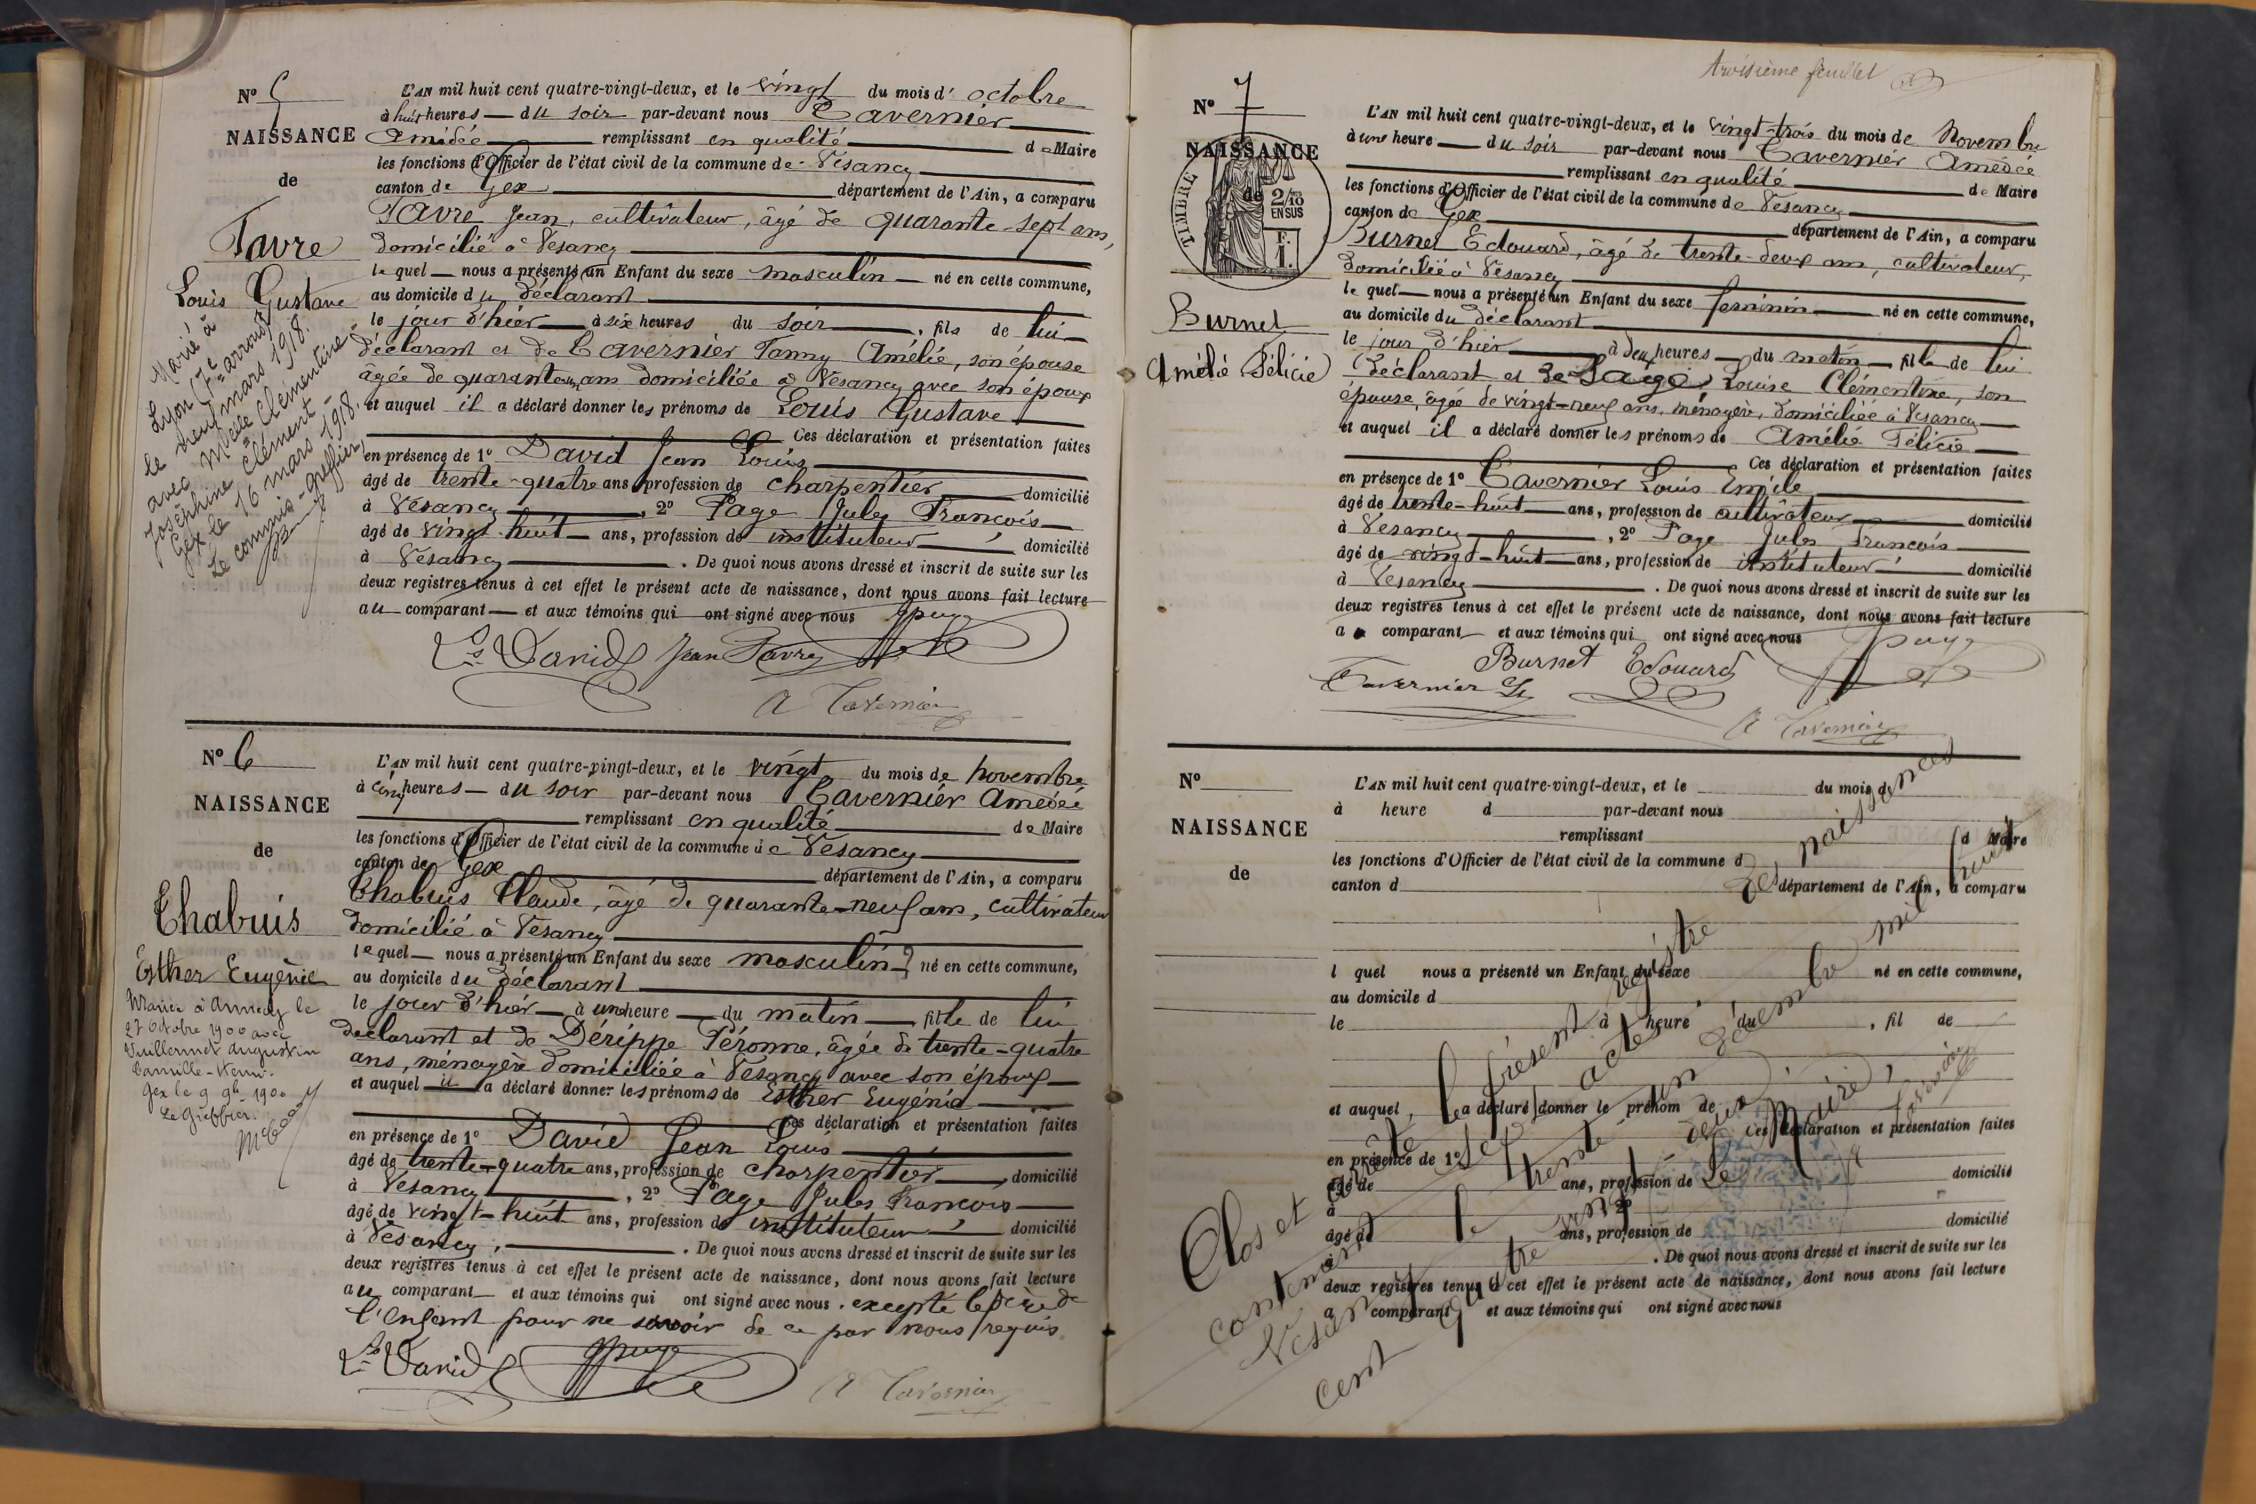 N° 5
NAISSANCE
de
Favre
Louis Gustave
Marié à
Lyon (7e arrondt)
le neuf mars 1918
avec Melle Clémentine
Joséphine Clément
Gex le 16 mars 1918.
Le commis-greffier
L'AN mil huit cent quatre-vingt-deux, et le vingt du mois d' octobre
à huit heures du soir par-devant nous Tavernier
Amédée remplissant en qualité de Maire
les fonctions d'Officier de l'état civil de la commune de Vesancy
canton de Gex département de l'Ain, a comparu
Favre Jean, cultivateur, âgé de quarante-sept ans,
domicilié à Vesancy
lequel nous a présenté un Enfant du sexe masculin né en cette commune,
au domicile du déclarant
le jour d'hier à six heures du soir, fils de lui
déclarant et de Tavernier Fanny Amélie, son épouse
âgée de quarante ans domiciliée à Vesancy avec son époux
et auquel il a déclaré donner les prénoms de Louis Gustave
Ces déclaration et présentation faites
en présence de 1° David Jean Louis
âgé de trente-quatre ans, profession de charpentier domicilié
à Vesancy, 2° Page Jules François
âgé de vingt-huit ans, profession de instituteur domicilié
à Vesancy. De quoi nous avons dressé et inscrit de suite sur les
deux registres tenus à cet effet le présent acte de naissance, dont nous avons fait lecture
au comparant et aux témoins qui ont signé avec nous
Ls David Jean Favre JPage
A Tavernier
N° 6
NAISSANCE
de
Chabuis
Esther Eugénie
Mariée à Annecy le
27 Octobre 1900 avec
Vuillermet Augustin
Camille-Henri.
Gex le 9 9bre 1900
Le Greffier.
L'AN mil huit cent quatre-vingt-deux, et le vingt du mois de novembre
à cinq heures du soir par-devant nous Tavernier Amédée
remplissant en qualité de Maire
les fonctions d'Officier de l'état civil de la commune de Vesancy
canton de Gex département de l'Ain, a comparu
Chabuis Claude, âgé de quarante-neuf ans, cultivateur
domicilié à Vesancy
lequel nous a présenté un Enfant du sexe masculin né en cette commune,
au domicile du déclarant
le jour d'hier à une heure du matin fille de lui
déclarant et de Dérippe Péronne, âgée de trente-quatre
ans, ménagère domiciliée à Vesancy avec son époux
et auquel il a déclaré donner les prénoms de Esther Eugénie
Ces déclaration et présentation faites
en présence de 1° David Jean Louis
âgé de trente-quatre ans, profession de charpentier domicilié
à Vesancy, 2° Page Jules François
âgé de vingt-huit ans, profession de instituteur domicilié
à Vesancy. De quoi nous avons dressé et inscrit de suite sur les
deux registres tenus à cet effet le présent acte de naissance, dont nous avons fait lecture
au comparant et aux témoins qui ont signé avec nous. excepté le père de
l'enfant pour ne savoir de ce par nous requis.
Ls David JPage
A Tavernier
troisième feuillet
N° 7
NAISSANCE
de
TIMBRE
2/10
EN SUS
F.
1.
Burnet
Amélie Félicie
L'AN mil huit cent quatre-vingt-deux, et le vingt-trois du mois de Novembre
à une heure du soir par-devant nous Tavernier Amédée
remplissant en qualité de Maire
les fonctions d'Officier de l'état civil de la commune de Vesancy
canton de Gex département de l'Ain, a comparu
Burnet Edouard, âgé de trente-deux ans, cultivateur,
domicilié à Vesancy
lequel nous a présenté un Enfant du sexe feminin né en cette commune,
au domicile du déclarant
le jour d'hier à deux heures du matin fille de lui
déclarant et de Louise Clémentine, son
épouse, âgée de vingt-neuf ans, ménagère, domiciliée à Vesancy
et auquel il a déclaré donner les prénoms de Amélie Félicie
Ces déclaration et présentation faites
en présence de 1° Tavernier Louis Emile
âgé de trente-huit ans, profession de cultivateur domicilié
à Vesancy, 2° Page Jules François
âgé de vingt-huit ans, profession de instituteur domicilié
à Vesancy. De quoi nous avons dressé et inscrit de suite sur les
deux registres tenus à cet effet le présent acte de naissance, dont nous avons fait lecture
a comparant et aux témoins qui ont signé avec nous
Burnet Edouard JPage
Tavernier
A Tavernier
N°
NAISSANCE
de
L'AN mil huit cent quatre-vingt-deux, et le du mois d
à heure d par-devant nous
remplissant d Maire
les fonctions d'Officier de l'état civil de la commune d
canton d département de l'Ain, a comparu
l quel nous a présenté un Enfant du sexe né en cette commune,
au domicile d
le à heure du, fil de
et auquel a déclaré donner le prénom de
Ces déclaration et présentation faites
en présence de 1°
âgé de ans, profession de domicilié
à, 2°
âgé de ans, profession de domicilié
à. De quoi nous avons dressé et inscrit de suite sur les
deux registres tenus à cet effet le présent acte de naissance, dont nous avons fait lecture
a comparant et aux témoins qui ont signé avec nous
Clos et arrêté le présent registre des naissances
contenant sept actes.
Vesancy le trente-un décembre mil huit
cent quatre vingt-deux.
Le Maire,
A Tavernier